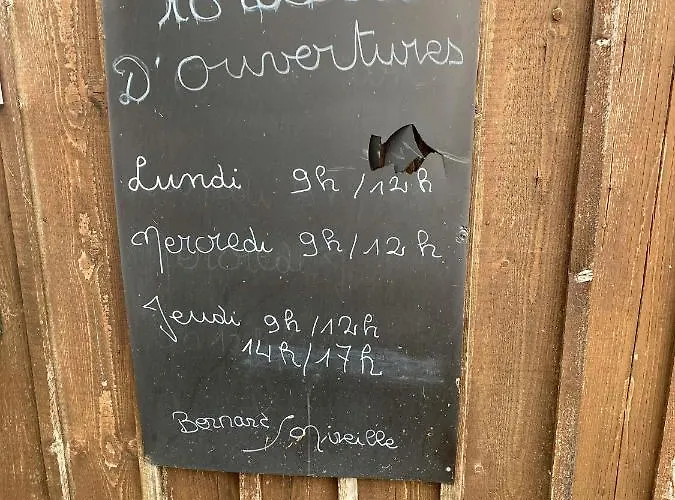 D'ouvertures
Lundi 9h/12h
Mercredi 9h/12h
Jeudi 9h/12h
14h/17h
Bernard Mireille